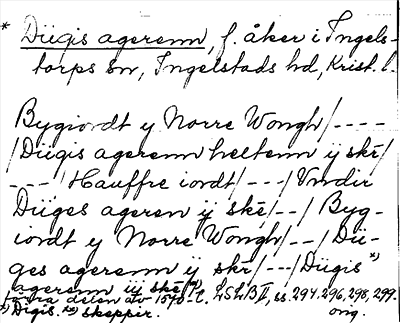 * Diigis agerenn, f. åker i Ingels-
torps sn, Ingelstads hd, Krist. l.
Bygiordt y Norre Wongh/----
/Diigis agerenn heltenn ÿ ské/
---/Hauffre iordt/---/Vndir
Diiges ageren ÿ ské/--/Byg-
iordt y Norre Wongh/--/Dii-
ges agerenn ÿ ské/---/Diigis *)
agerenn ÿ ské
förra delen av 1570-t. LSLB II, ss. 294, 296, 298, 299.
*) Digis. **) skeppir. orig.